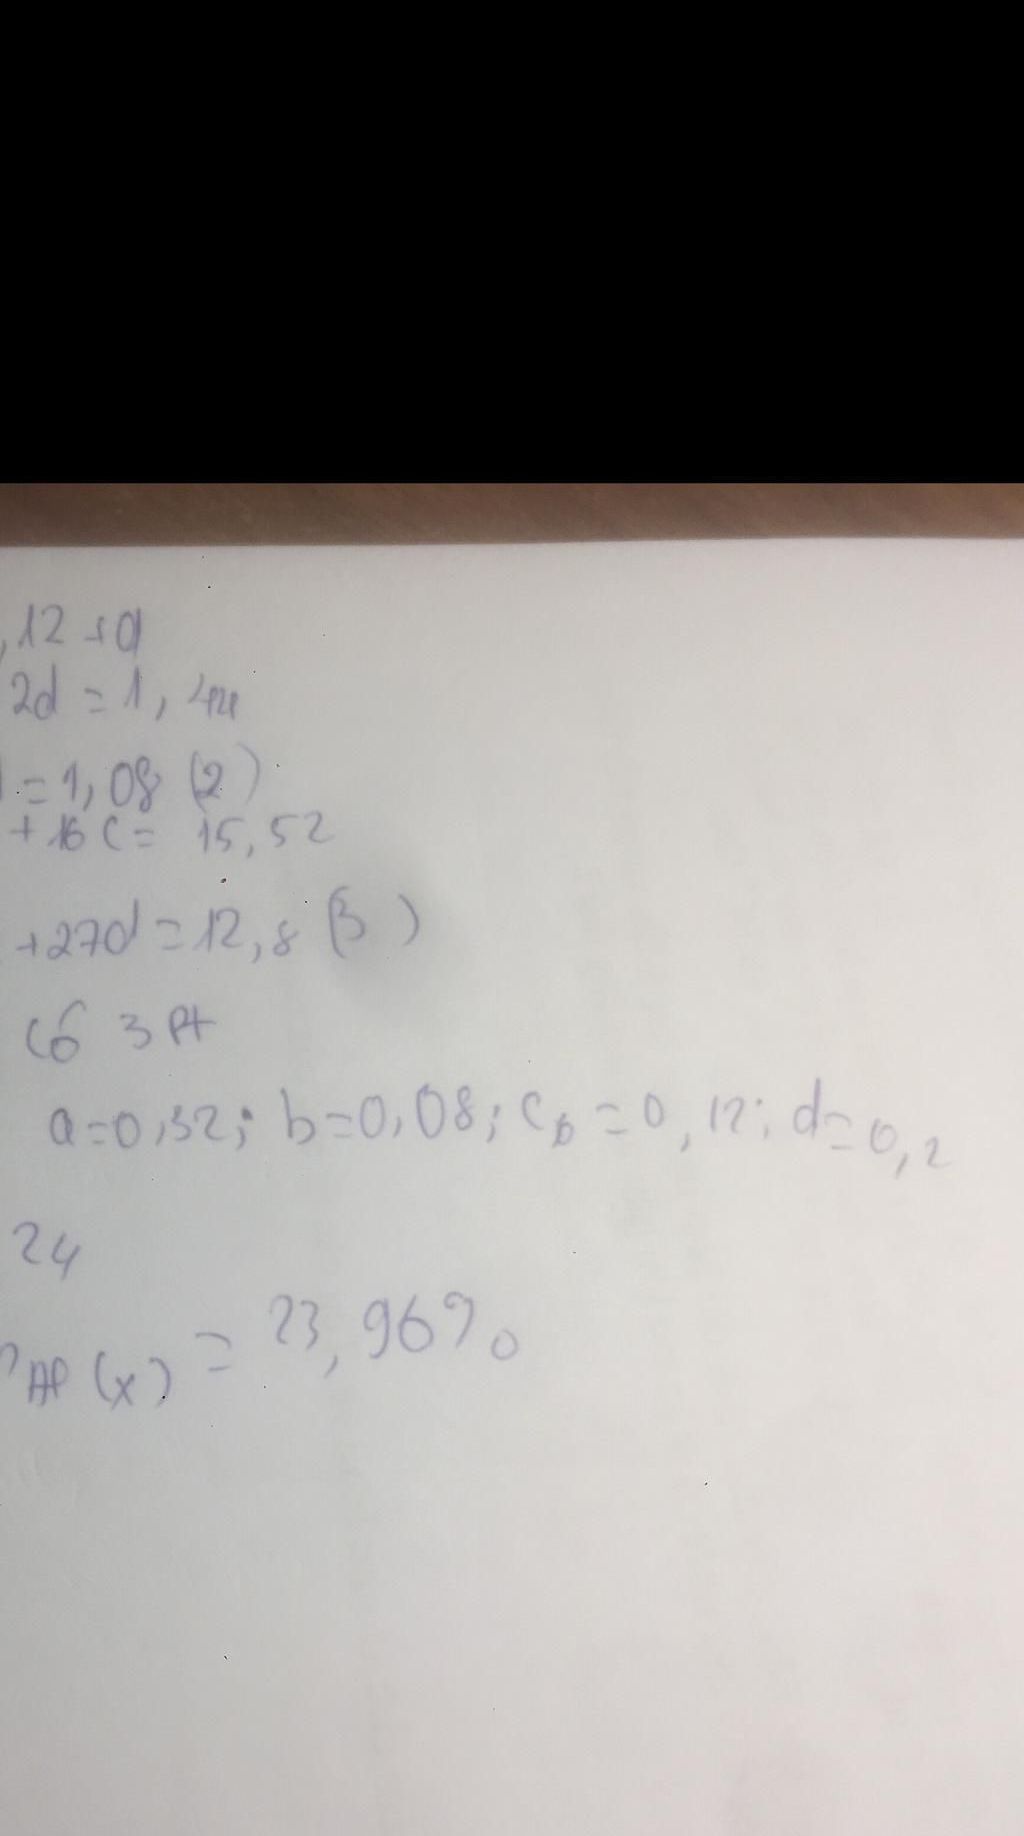 ,12 + a
2d = 1,44
= 1,08 (2)
+ 16 c = 15,52
+27d = 12,8 (3)
3 Pt
a=0,32; b=0,08; c = 0,12; d=0,2
24
AP (x) = 23,96%